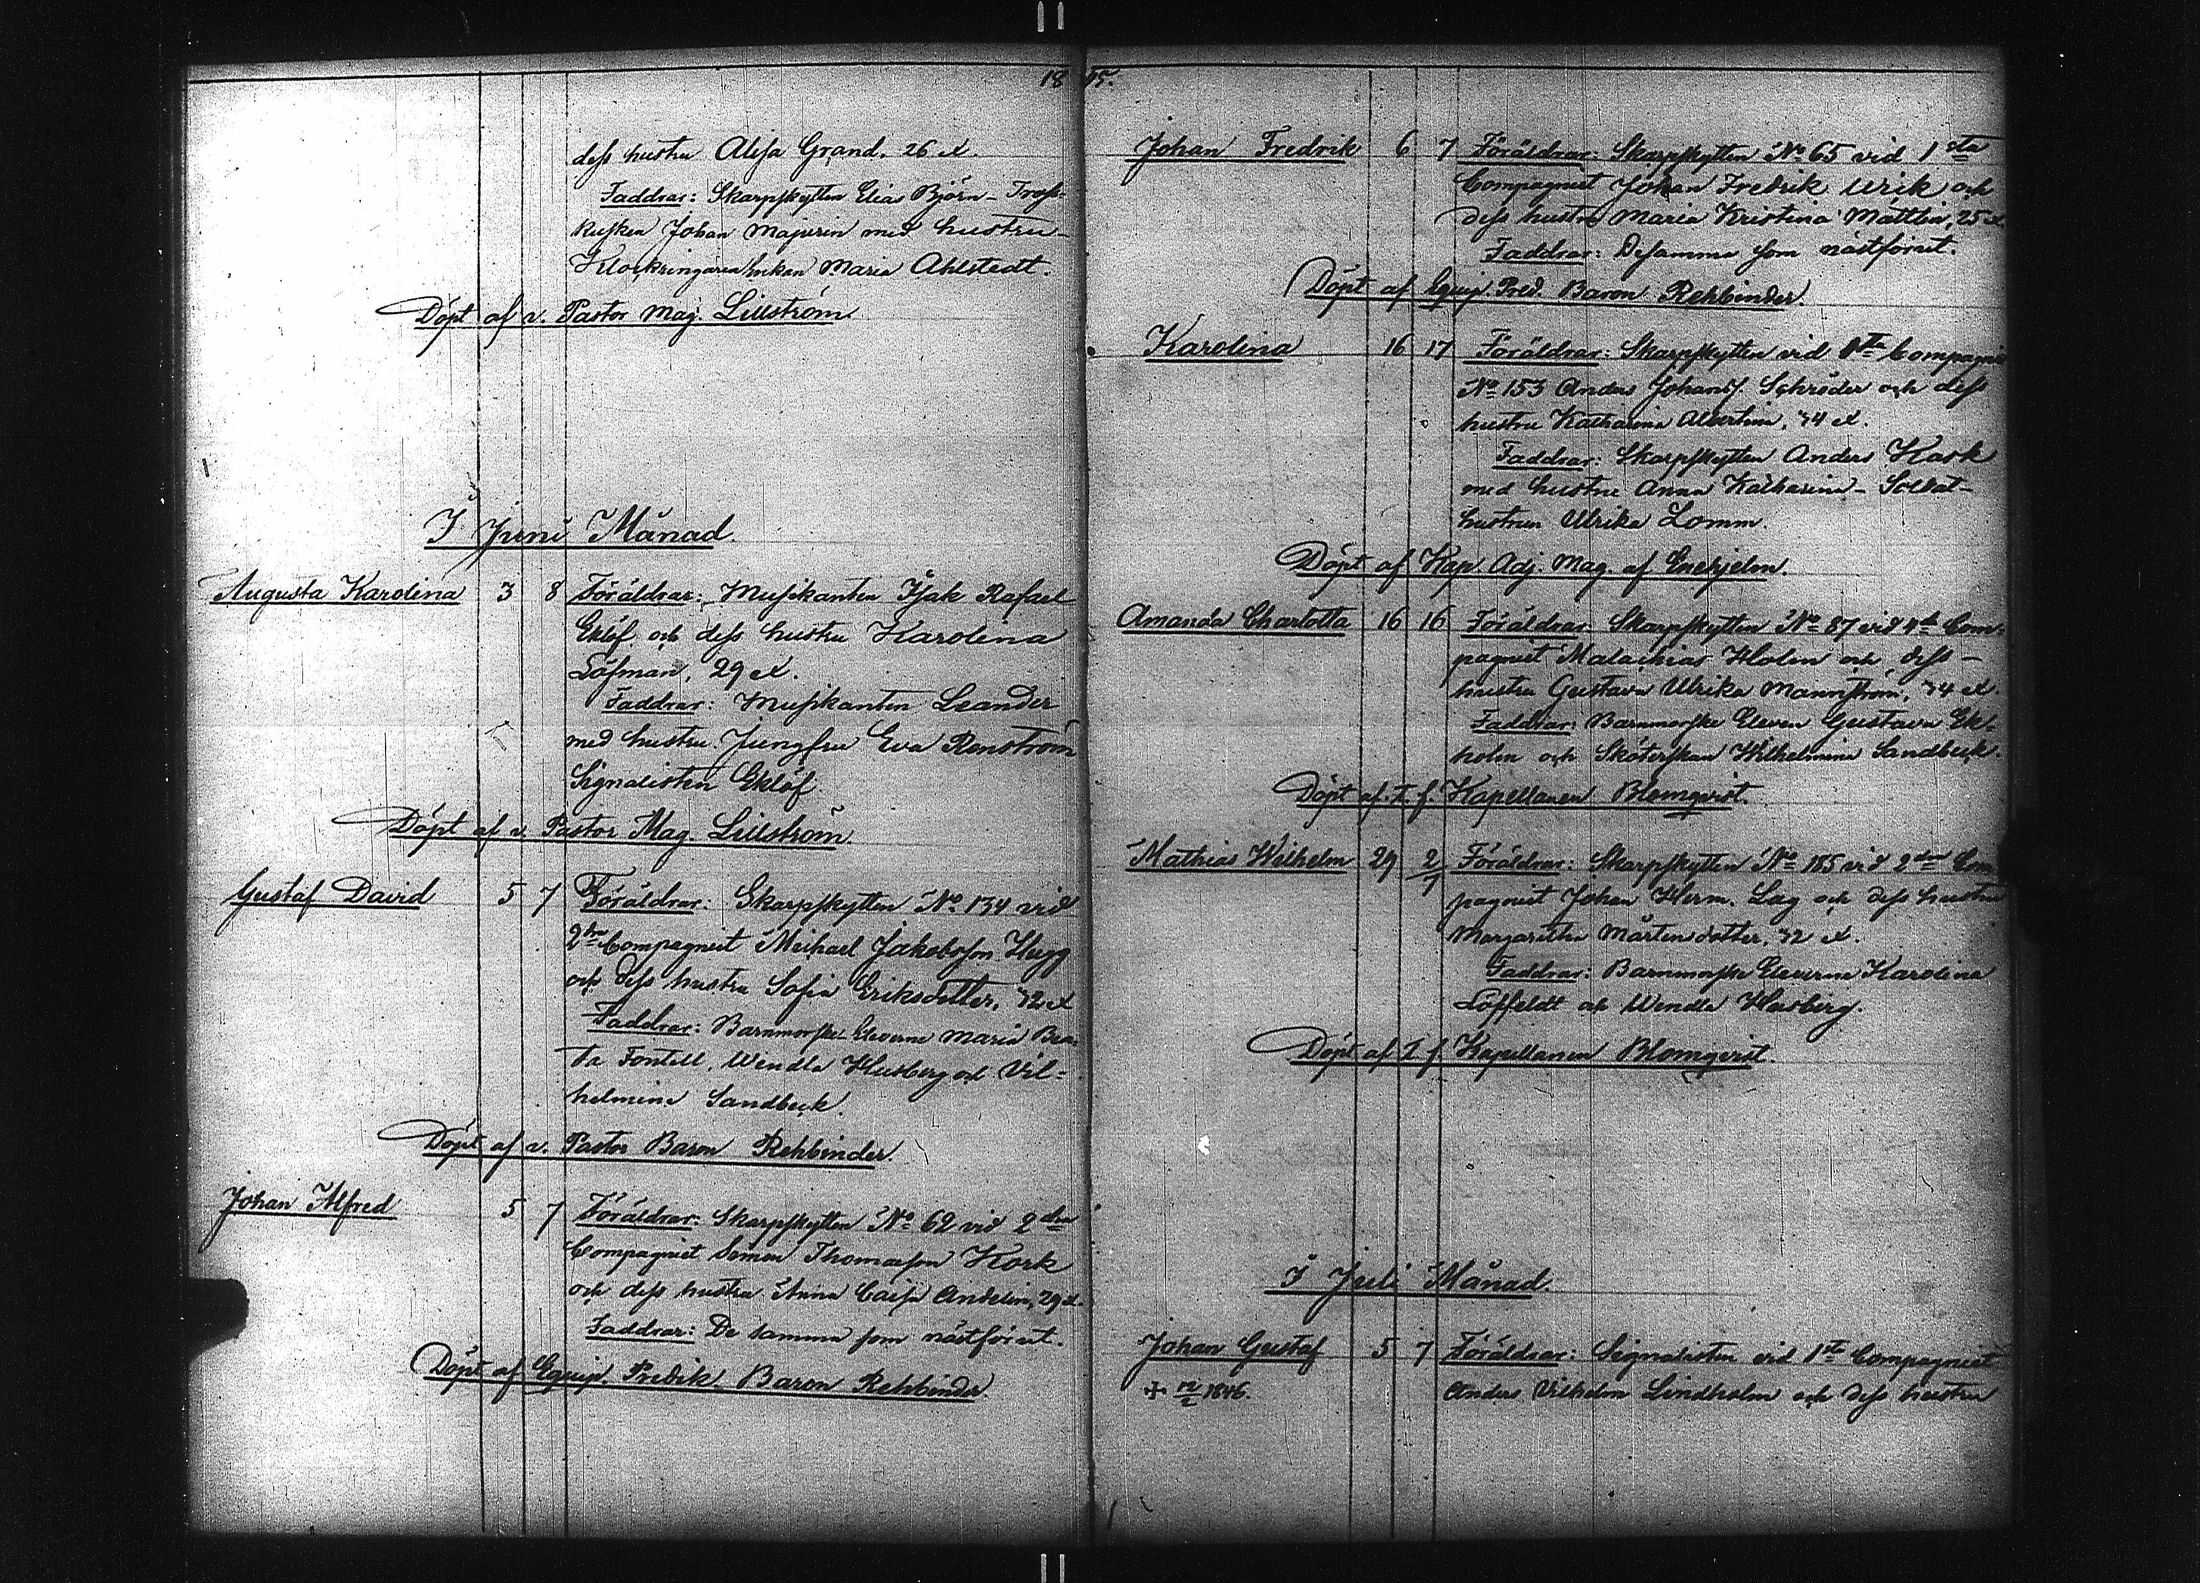 18 55.
dess hustru Alisa Grand. 26 et.
Faddrar: Skarpskytten Elias Björn – Tross-
kusken Johan Majurin med hustru –
Klockringareenkan Maria Ahlstedt.
Döpt af v. Pastor Mag. Lillström.
I Juni Månad.
Augusta Karolina 3 8 Föräldrar: Musikanten Isak Rafael
Eklöf och dess hustru Karolina
Löfman, 29 et.
Faddrar: Musikanten Leander
med hustru. Jungfru Eva Renström
Signalisten Eklöf
Döpt af v. Pastor Mag. Lillström.
Gustaf David 5 7 Föräldrar: Skarpskytten No 134 vid
2dra Compagniet Michael Jakobsson Hugg
och dess hustru Sofia Eriksdotter, 32 et
Faddrar: Barnmorske Eleverne Maria Bea-
ta Fontell, Wendla Husberg och Vil-
helmina Sandbeck.
Döpt af v. Pastor Baron Rehbinder.
Johan Alfred 5 7 Föräldrar: Skarpskytten No 62 vid 2dra
Compagniet Simon Thomasson Kork
och dess hustru Anna Caisa Andelin, 29 et.
Faddrar: De samma som nästförut.
Döpt af Equip. Predik. Baron Rehbinder
Johan Fredrik 6 7 Föräldrar: Skarpskytten No 65 vid 1sta
Compagniet Johan Fredrik Urik och
dess hustru Maria Kristina Mattlin, 25 et.
Faddrar: Desamma som nästförut.
Döpt af Equip. Pred. Baron Rehbinder.
Karolina 16 17 Föräldrar: Skarpskytten vid 1sta Compagni
No 153 Anders Johans Schröder och dess
hustru Katharina Albertina, 34 et.
Faddrar: Skarpskytten Anders Hark
med hustru Anna Katharina – Soldat-
hustrun Ulrika Lomm.
Döpt af Kap. Adj. Mag. af Enehjelm.
Amanda Charlotta 16 16 Föräldrar: Skarpskytten No 87 vid Com-
pagniet Malachias Holm och dess –
hustru Gustava Ulrika Mannström, 34 et.
Faddrar: Barnmorske Eleven Gustava Ek-
holm och Sköterskan Wilhelmina Sandbeck.
Döpt af T. f. Kapellanen Blomqvist.
Mathias Wilhelm 29 2/7 Föräldrar: Skarpskytten No 185 vid 2dra Com
pagniet Johan Herm. Lag och dess hustru
Margaretha Mårtensdotter, 32 et.
Faddrar: Barnmorske Eleverne Karolina
Löffeldt och Wendla Husberg.
Döpt af T. f. Kapellanen Blomqvist.
I Juli Månad.
Johan Gustaf 5 7 Föräldrar: Signalisten vid 1sta Compagniet
1846. Anders Vilhelm Lindholm och dess hustru